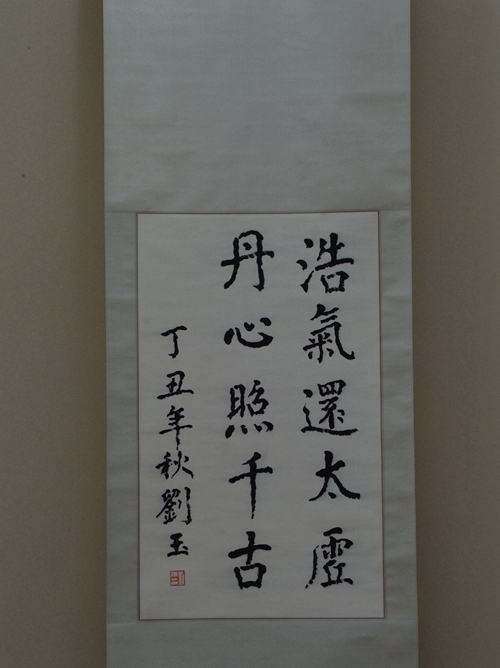 浩氣還太虛
丹心照千古
丁丑年秋劉玉